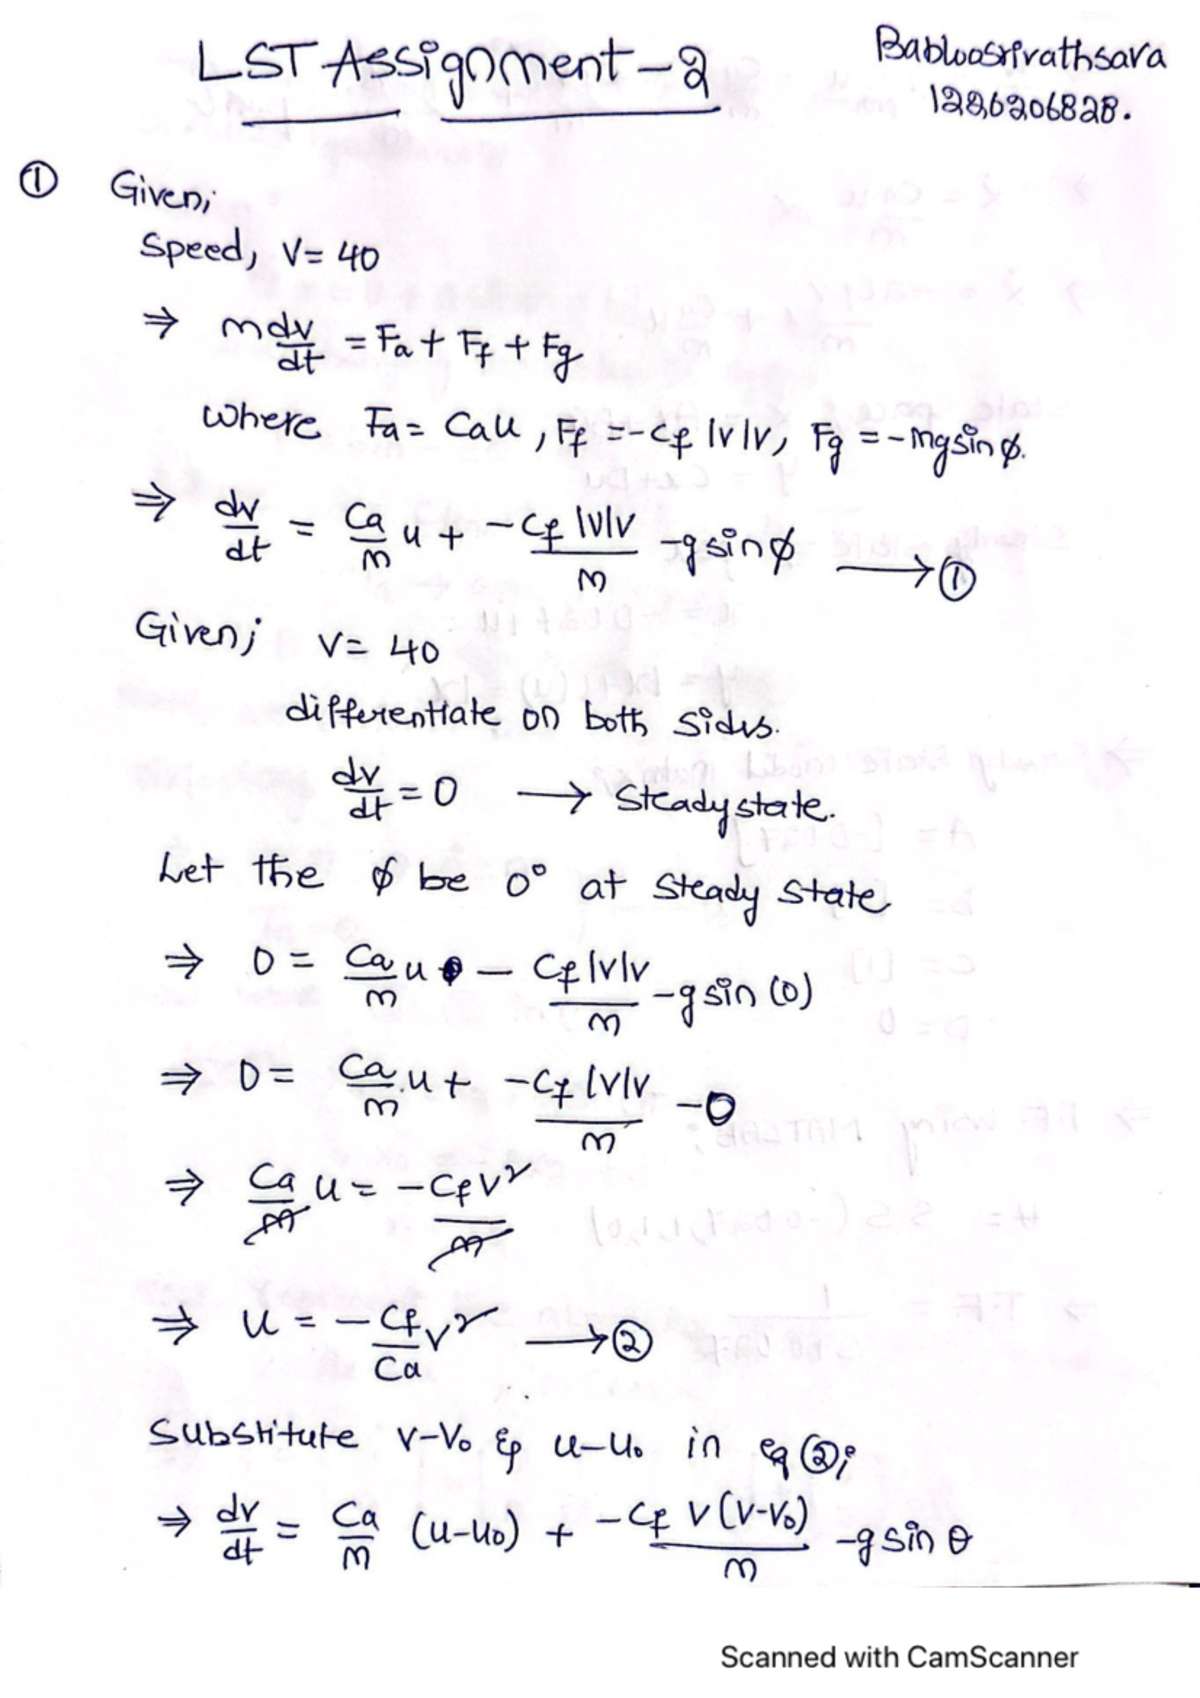 LST Assignment-2
Babloosrivathsava
1226206828.
① Given;
Speed, V= 40
⇒ m dv/dt = Fa + Ff + Fg
where Fa = Ca u, Ff = -Cf |v|v, Fg = -mg sin φ.
⇒ dv/dt = Ca/m u + -Cf |v|v/m - g sin φ ⟶ ①
Given; V= 40
differentiate on both sides.
dv/dt = 0 ⟶ Steady state.
Let the φ be 0° at steady state
⇒ 0 = Ca/m u - Cf |v|v/m - g sin (0)
⇒ 0 = Ca/m . u + -Cf |v|v/m - 0
⇒ Ca/m u = -Cf v²/m
⇒ u = -Cf/Ca v² ⟶ ②
Substitute v-v₀ & u-u₀ in eq ②;
⇒ dv/dt = Ca/m (u-u₀) + -Cf v(v-v₀)/m - g sin θ
Scanned with CamScanner